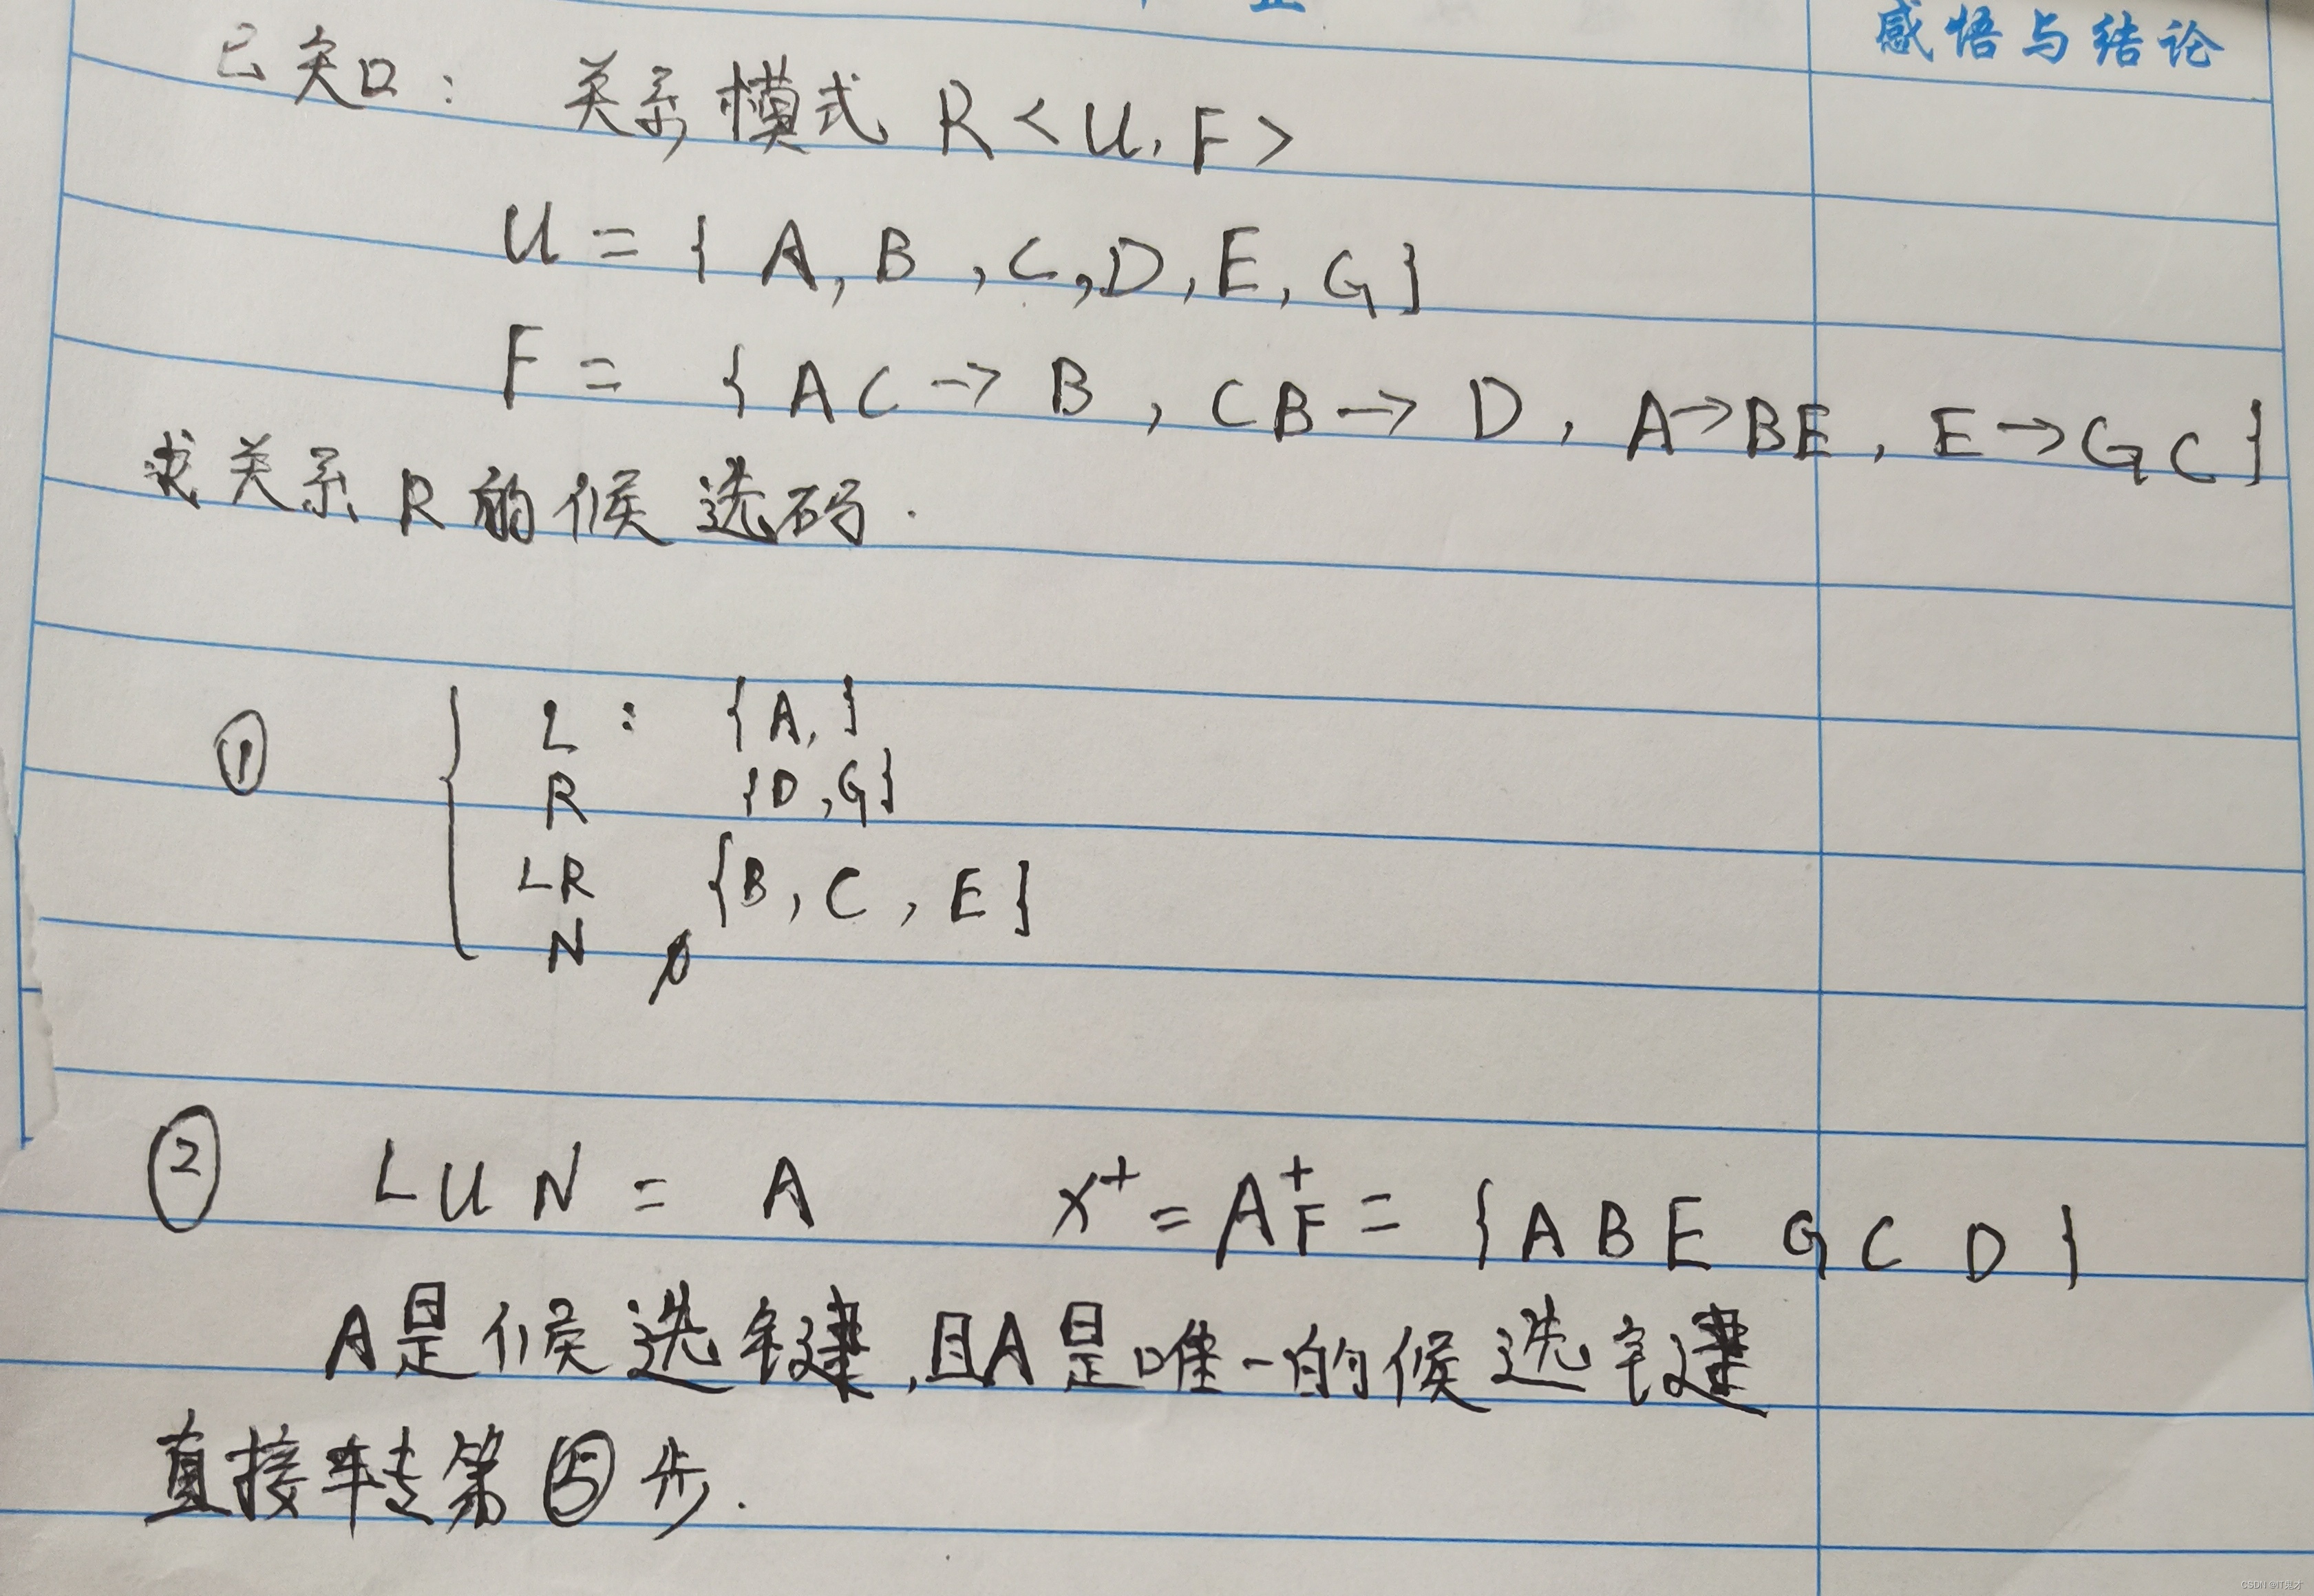 感悟与结论
已知： 关系模式 R<U, F>
U = { A, B , C, D, E, G }
F = { AC → B , CB → D , A→BE , E→GC }
求关系R的候选码.
① L : {A, }
R {D, G}
LR {B, C, E}
N ∅
② L U N = A X⁺ = A⁺F = { A B E G C D }
A是候选键,且A是唯一的候选键
直接转第⑤步.